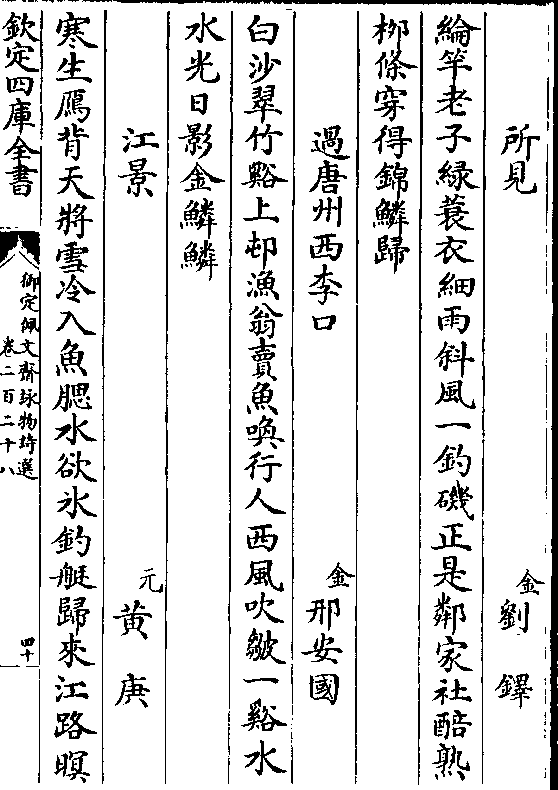 所見　金劉鐸
綸竿老子緑蓑衣細雨斜風一釣磯正是鄰家社醅熟
栁條穿得錦鱗歸
過唐州西李口　金邢安國
白沙翠竹谿上邨漁翁賣魚喚行人西風吹皺一谿水
水光日影金鱗鱗
江景　元黄庚
寒生鴈背天將雪冷入魚腮水欲氷釣艇歸來江路暝
欽定四庫全書
御定佩文齋詠物詩選
卷二百二十八
四十